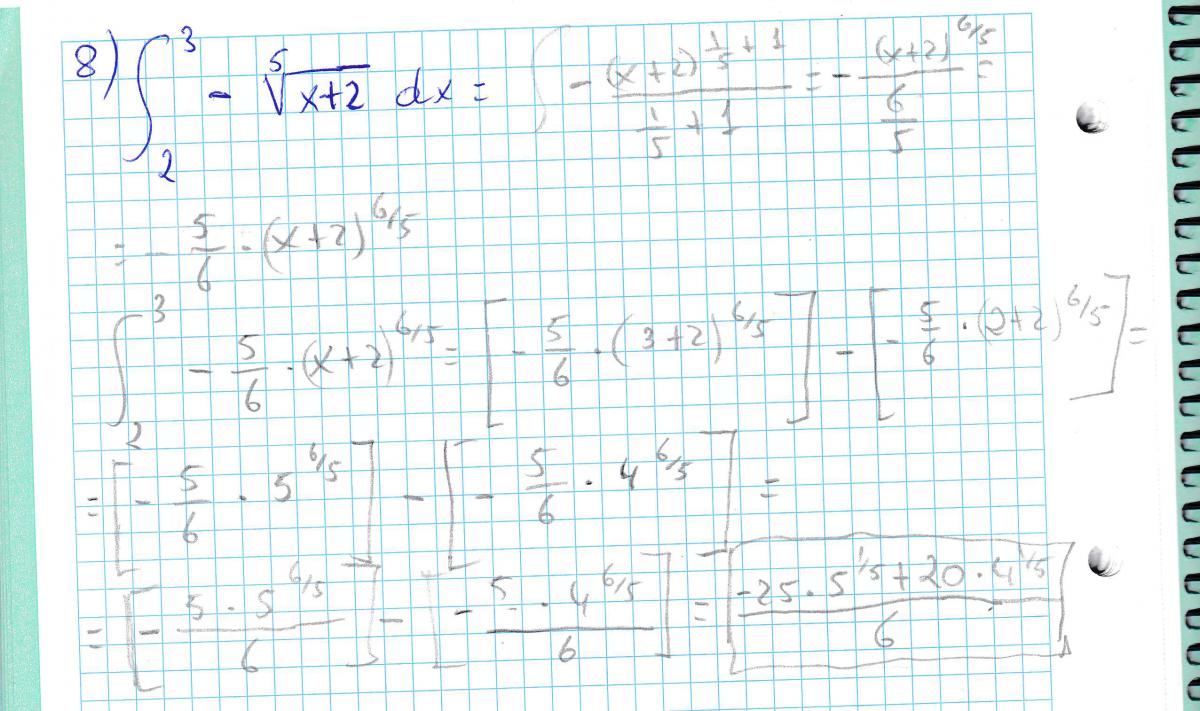 8) ∫₂³ - ⁵√(x+2) dx = ∫ - (x+2)^(1/5 + 1) / (1/5 + 1) = - (x+2)^(6/5) / (6/5) =
= - 5/6 · (x+2)^(6/5)
∫₂³ - 5/6 · (x+2)^(6/5) = [ - 5/6 · (3+2)^(6/5) ] - [ - 5/6 · (2+2)^(6/5) ] =
= [ - 5/6 · 5^(6/5) ] - [ - 5/6 · 4^(6/5) ] =
= [ - (5 · 5^(6/5)) / 6 ] - [ - (5 · 4^(6/5)) / 6 ] = (-25 · 5^(1/5) + 20 · 4^(1/5)) / 6